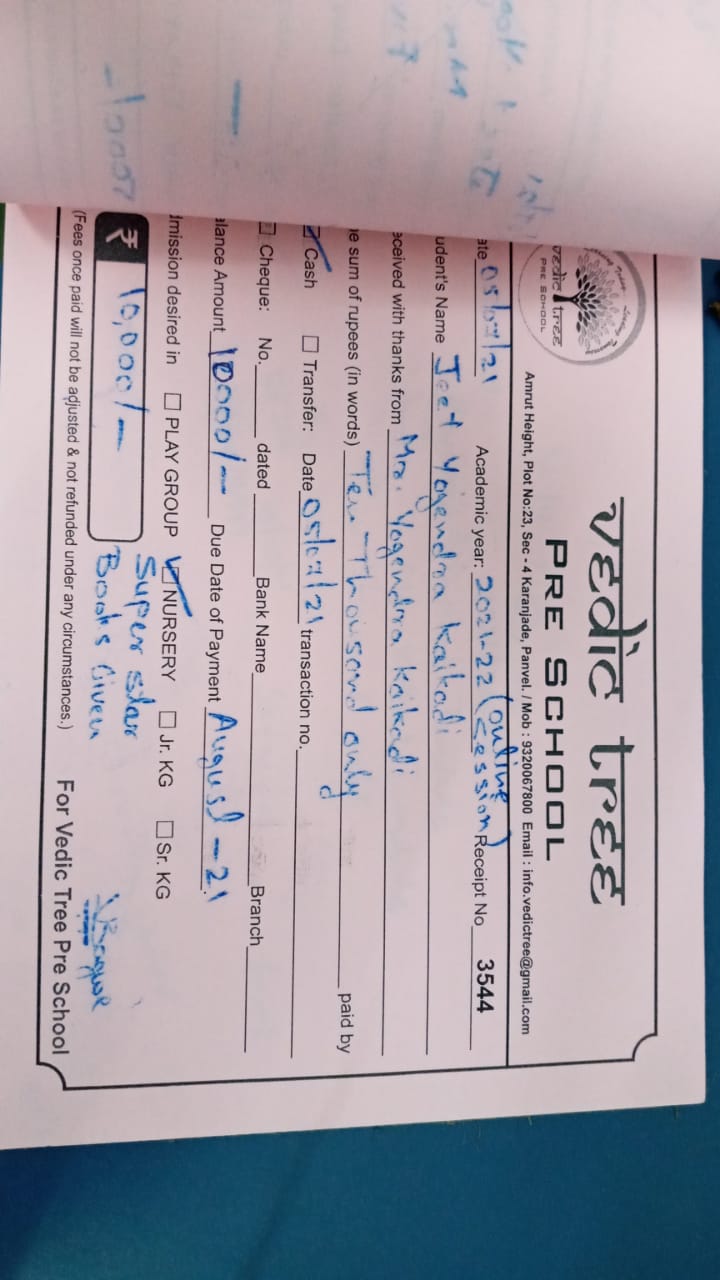 vedic tree
PRE SCHOOL
vedic tree
PRE SCHOOL
Amrut Height, Plot No:23, Sec - 4 Karanjade, Panvel. / Mob : 9320067800 Email : info.vedictree@gmail.com
ate 05/07/21 Academic year: 2021-22 (online session) Receipt No 3544
udent's Name Jeet Yogendra Kaikadi
eceived with thanks from Mr. Yogendra Kaikadi
e sum of rupees (in words) Ten Thousand only paid by
Cash Transfer: Date 05/07/21 transaction no.
Cheque: No. dated Bank Name Branch
alance Amount 10000/- Due Date of Payment August - 21.
dmission desired in PLAY GROUP NURSERY Jr. KG Sr. KG
Super star
₹ 10,000/- Books Given
(Fees once paid will not be adjusted & not refunded under any circumstances.) For Vedic Tree Pre School